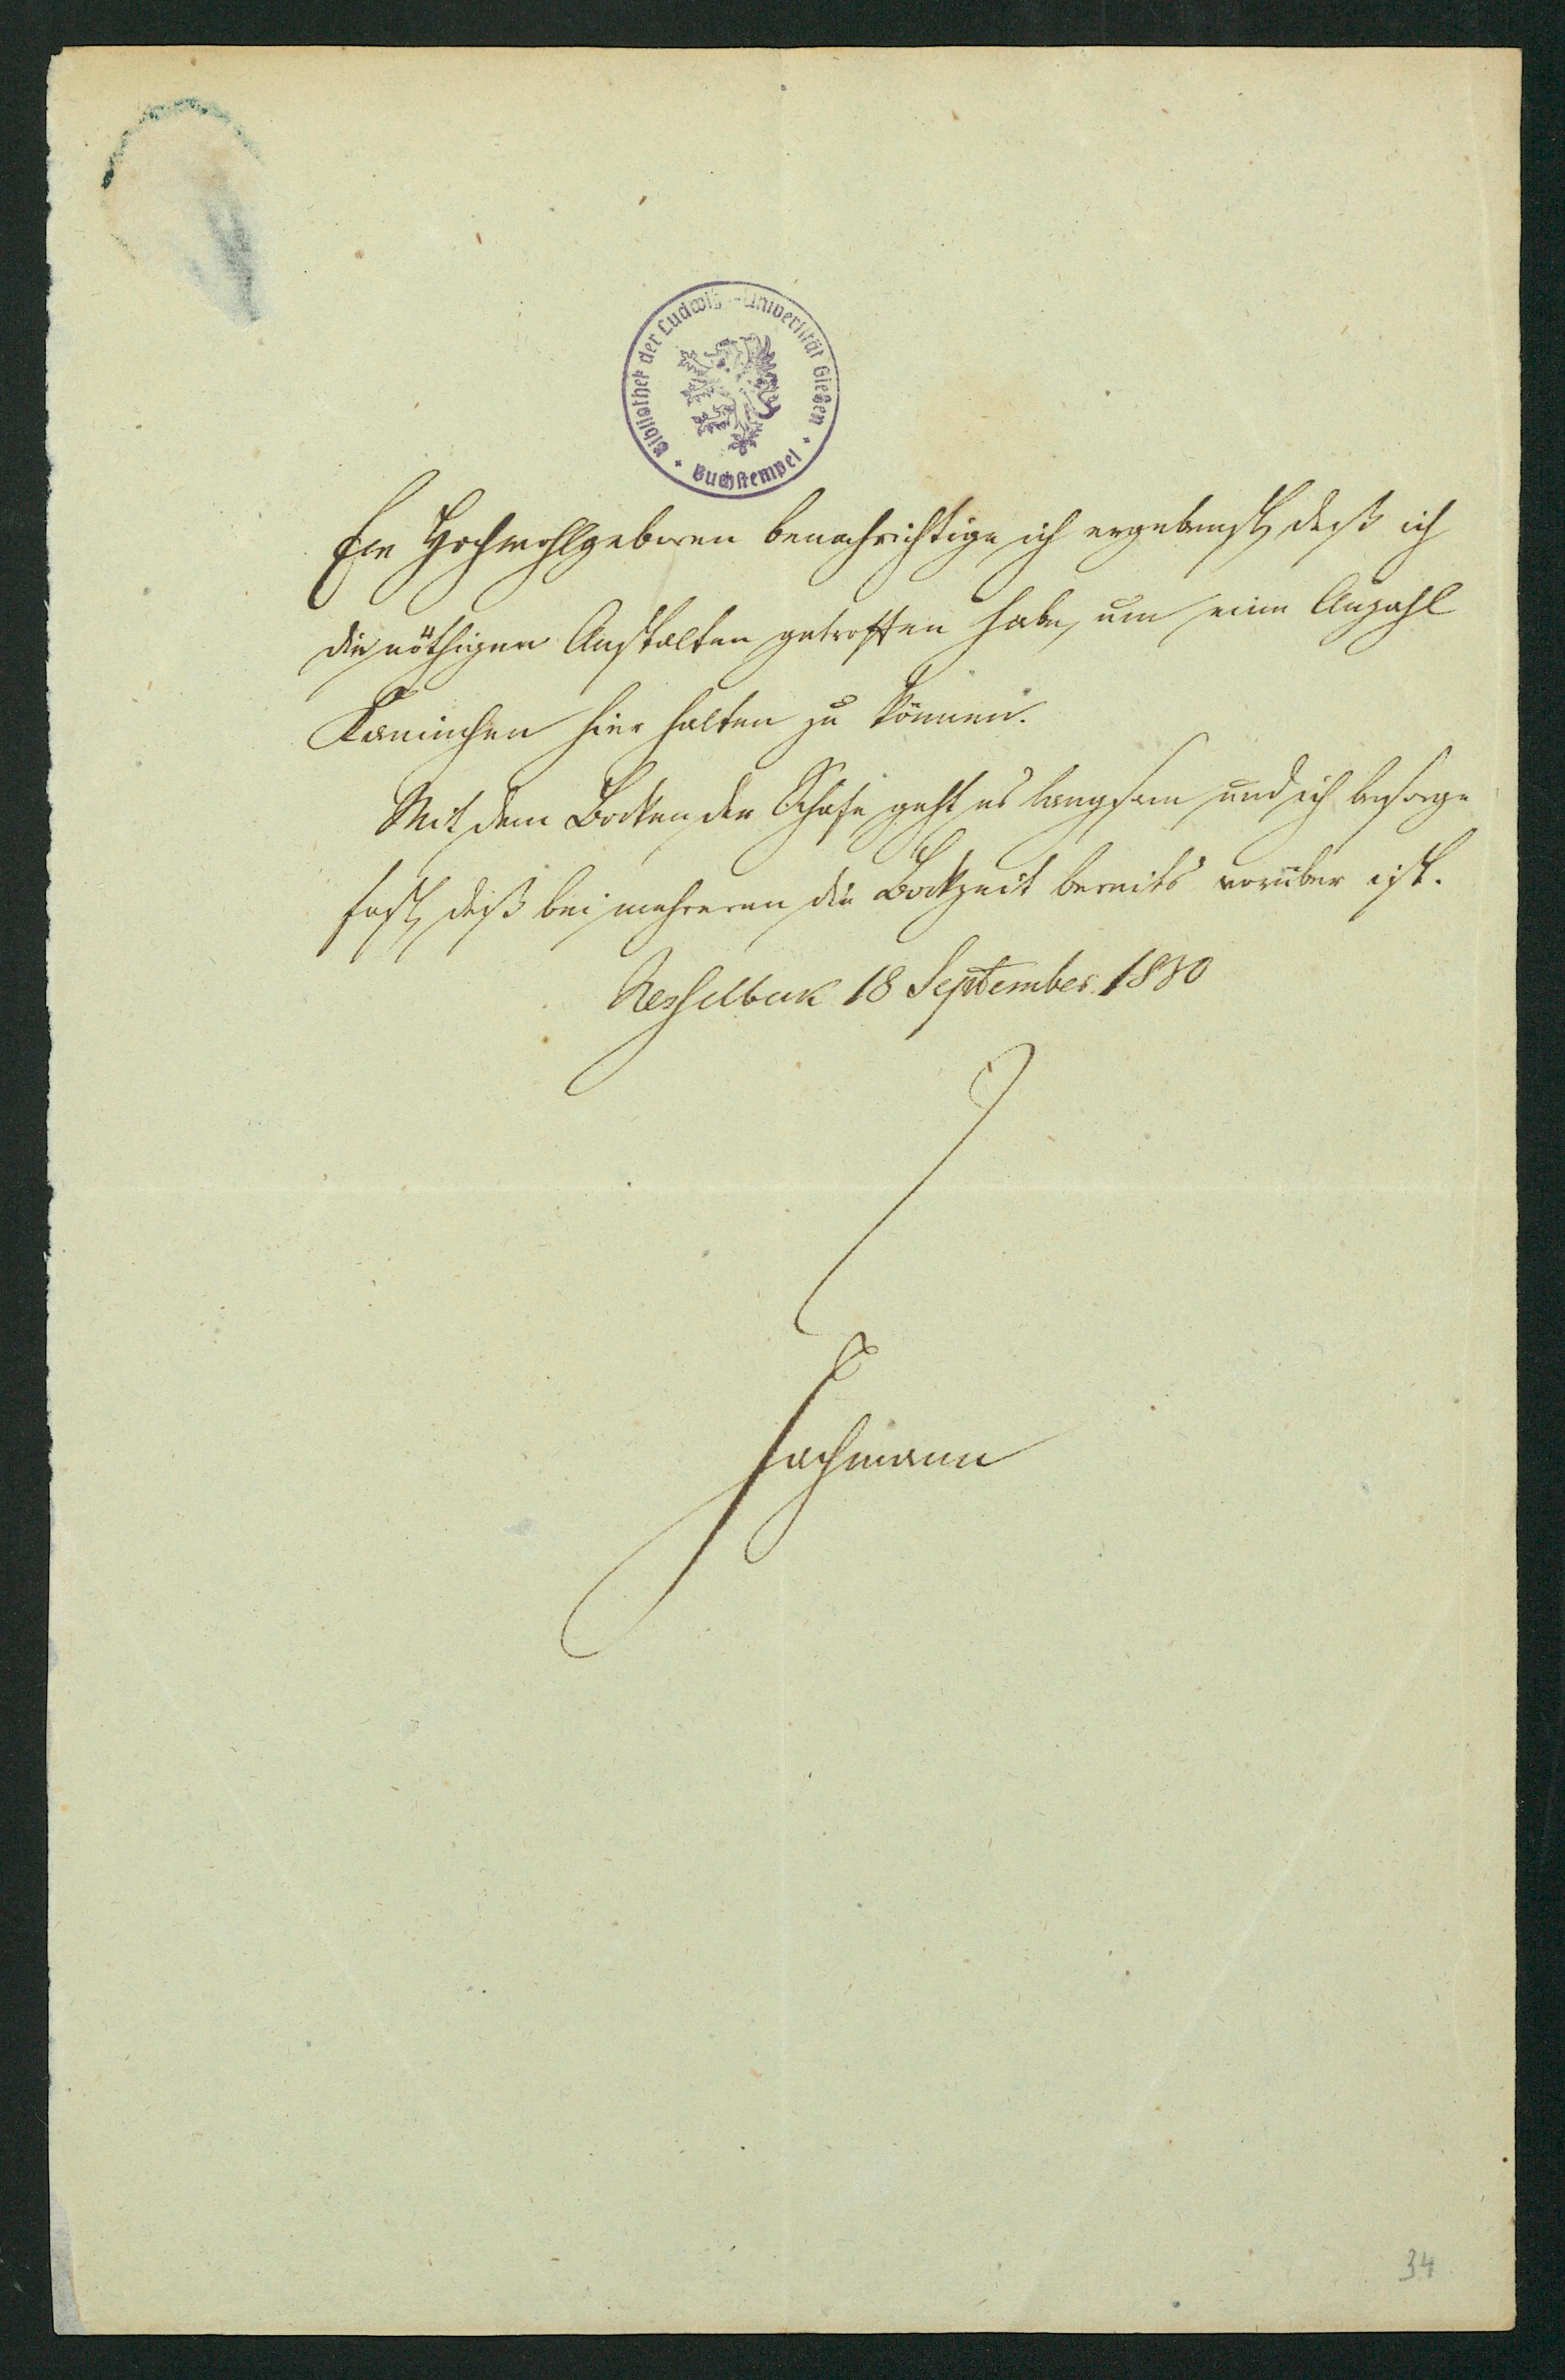 Bibliothek der Ludwigs-Universität Gießen
Buchstempel
Ew Hochwohlgeboren benachrichtige ich ergebenst, daß ich
die nöthigen Anstalten getroffen habe, um eine Anzahl
Kaninchen hier halten zu können.
Mit dem Bocken der Schafe geht es langsam und ich besorge
fast, daß bei mehreren die Bockzeit bereits vorüber ist.
18 September 18
34